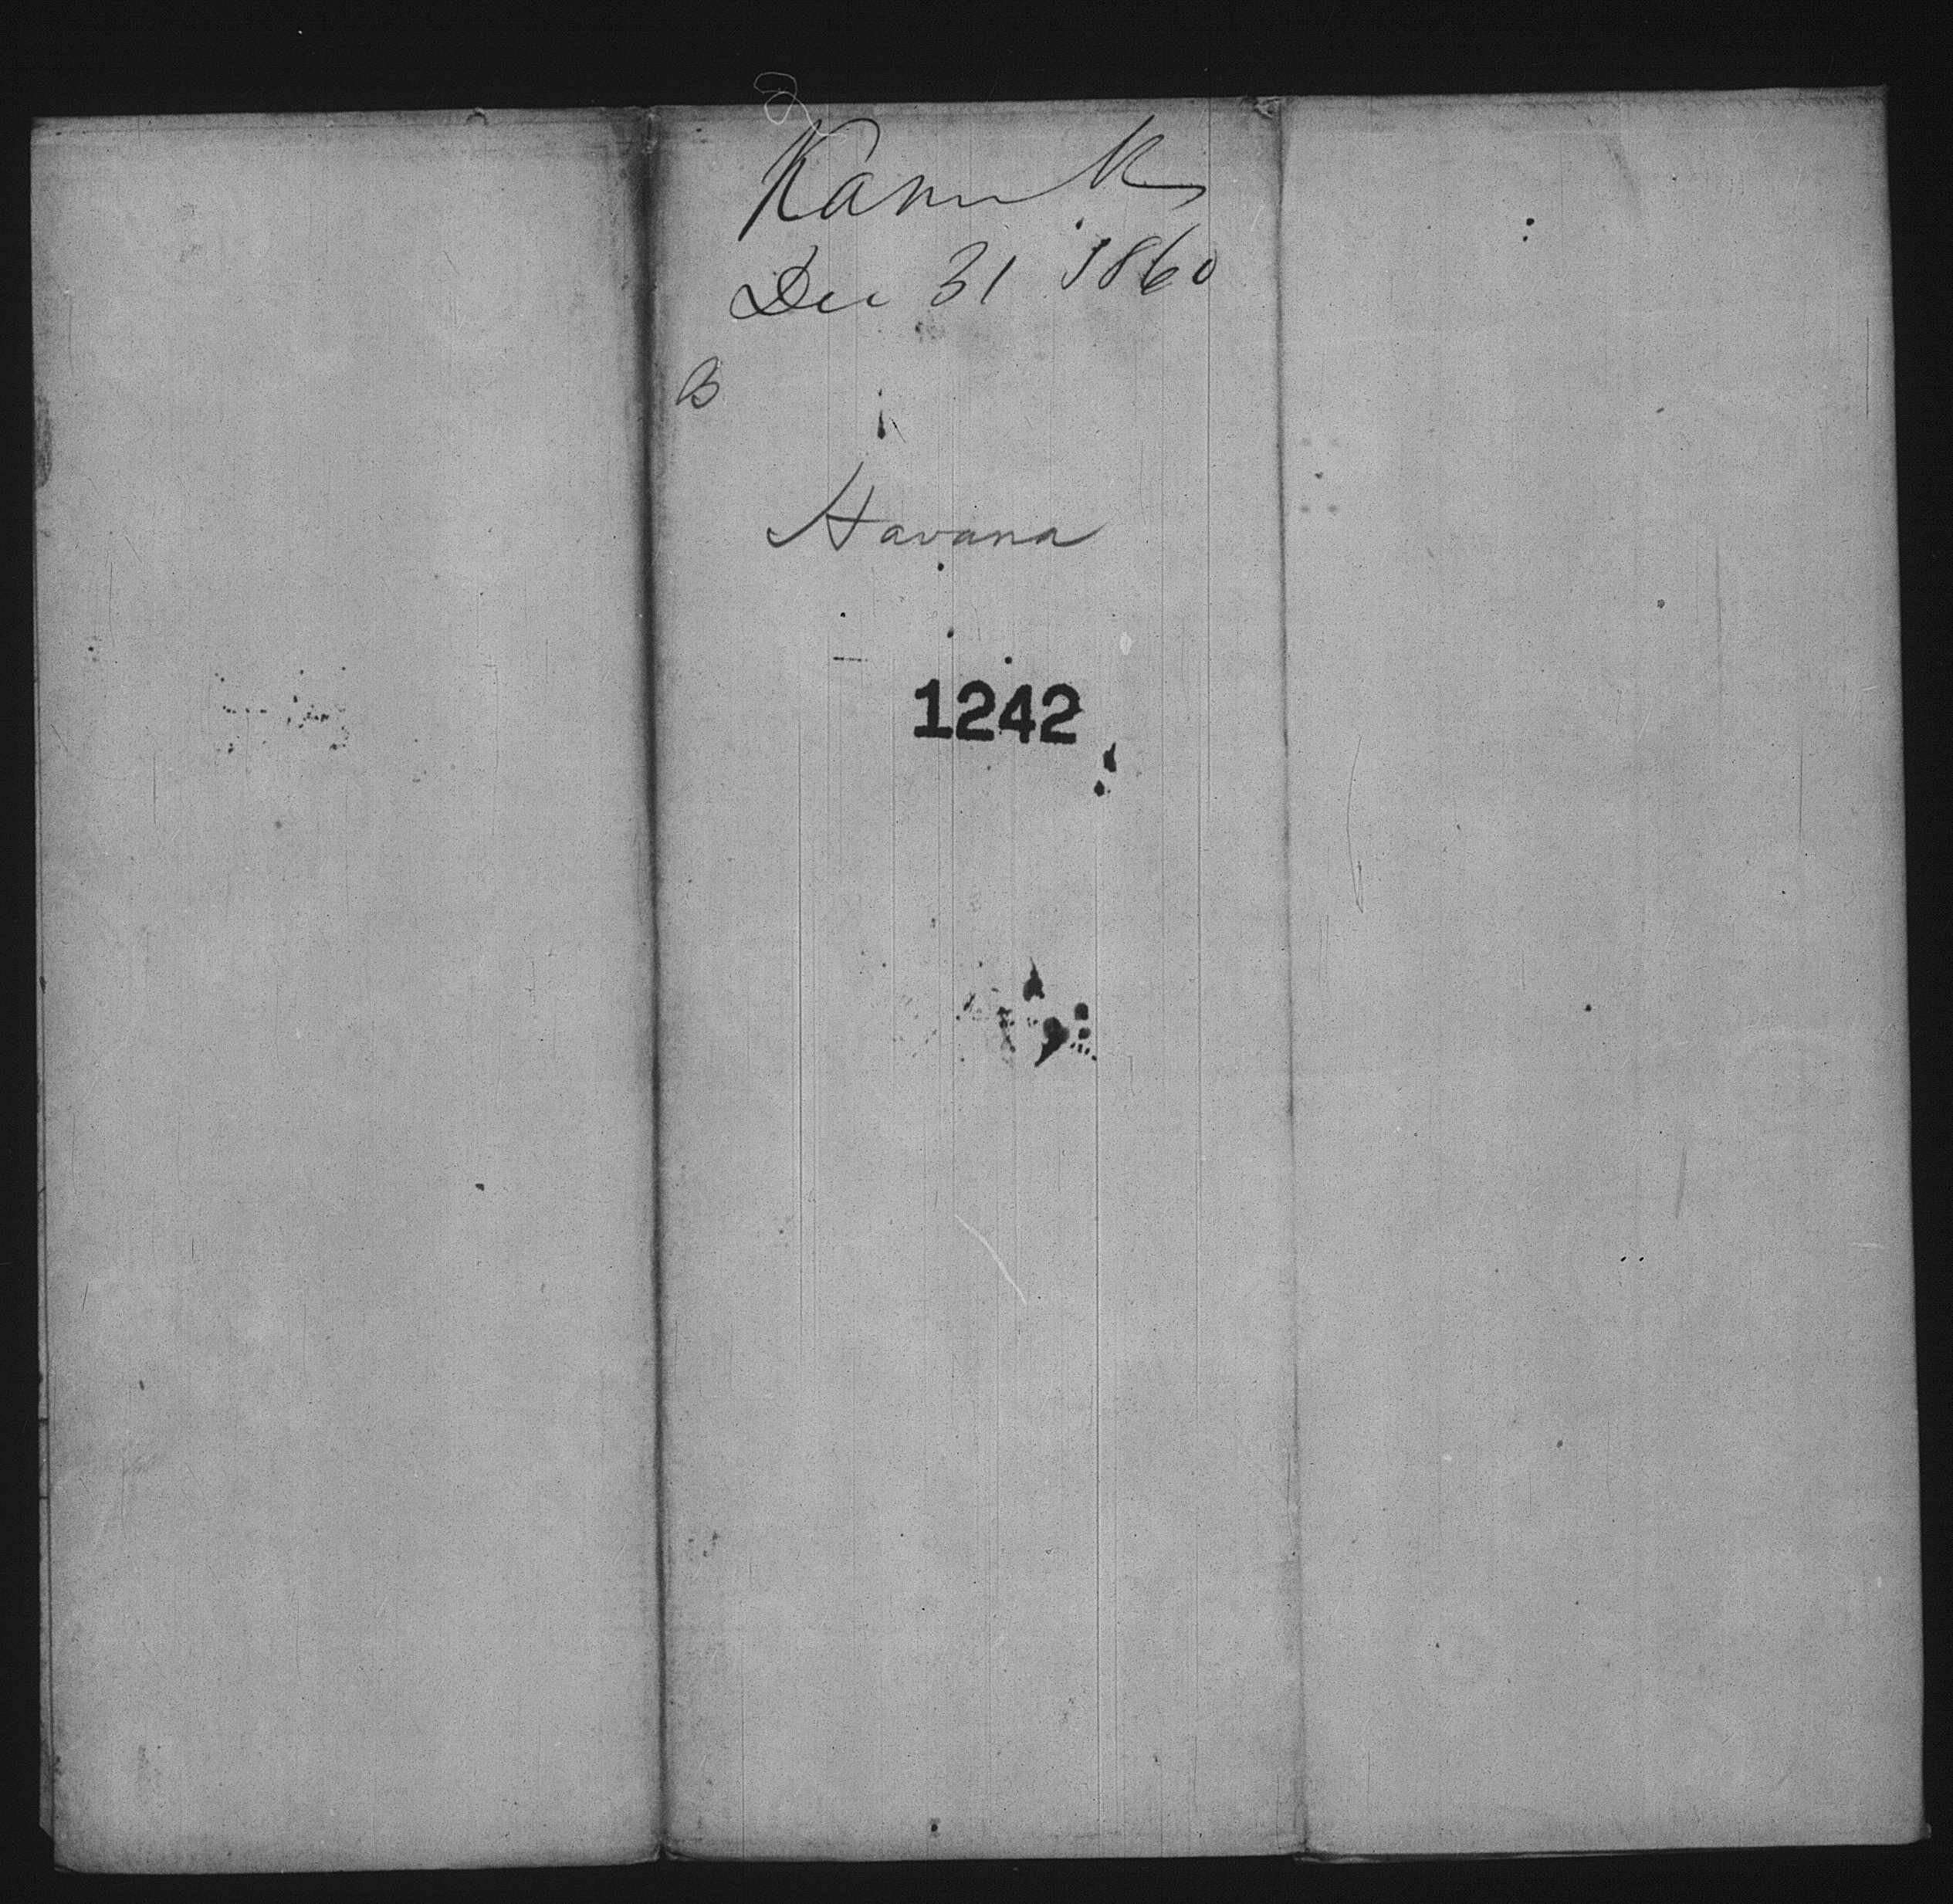 Kanuk
Dec 31 1860
B
Havana
1242